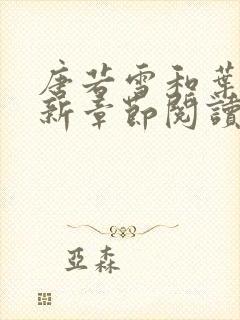 唐若雪和葉
新章節閱讀
亞森